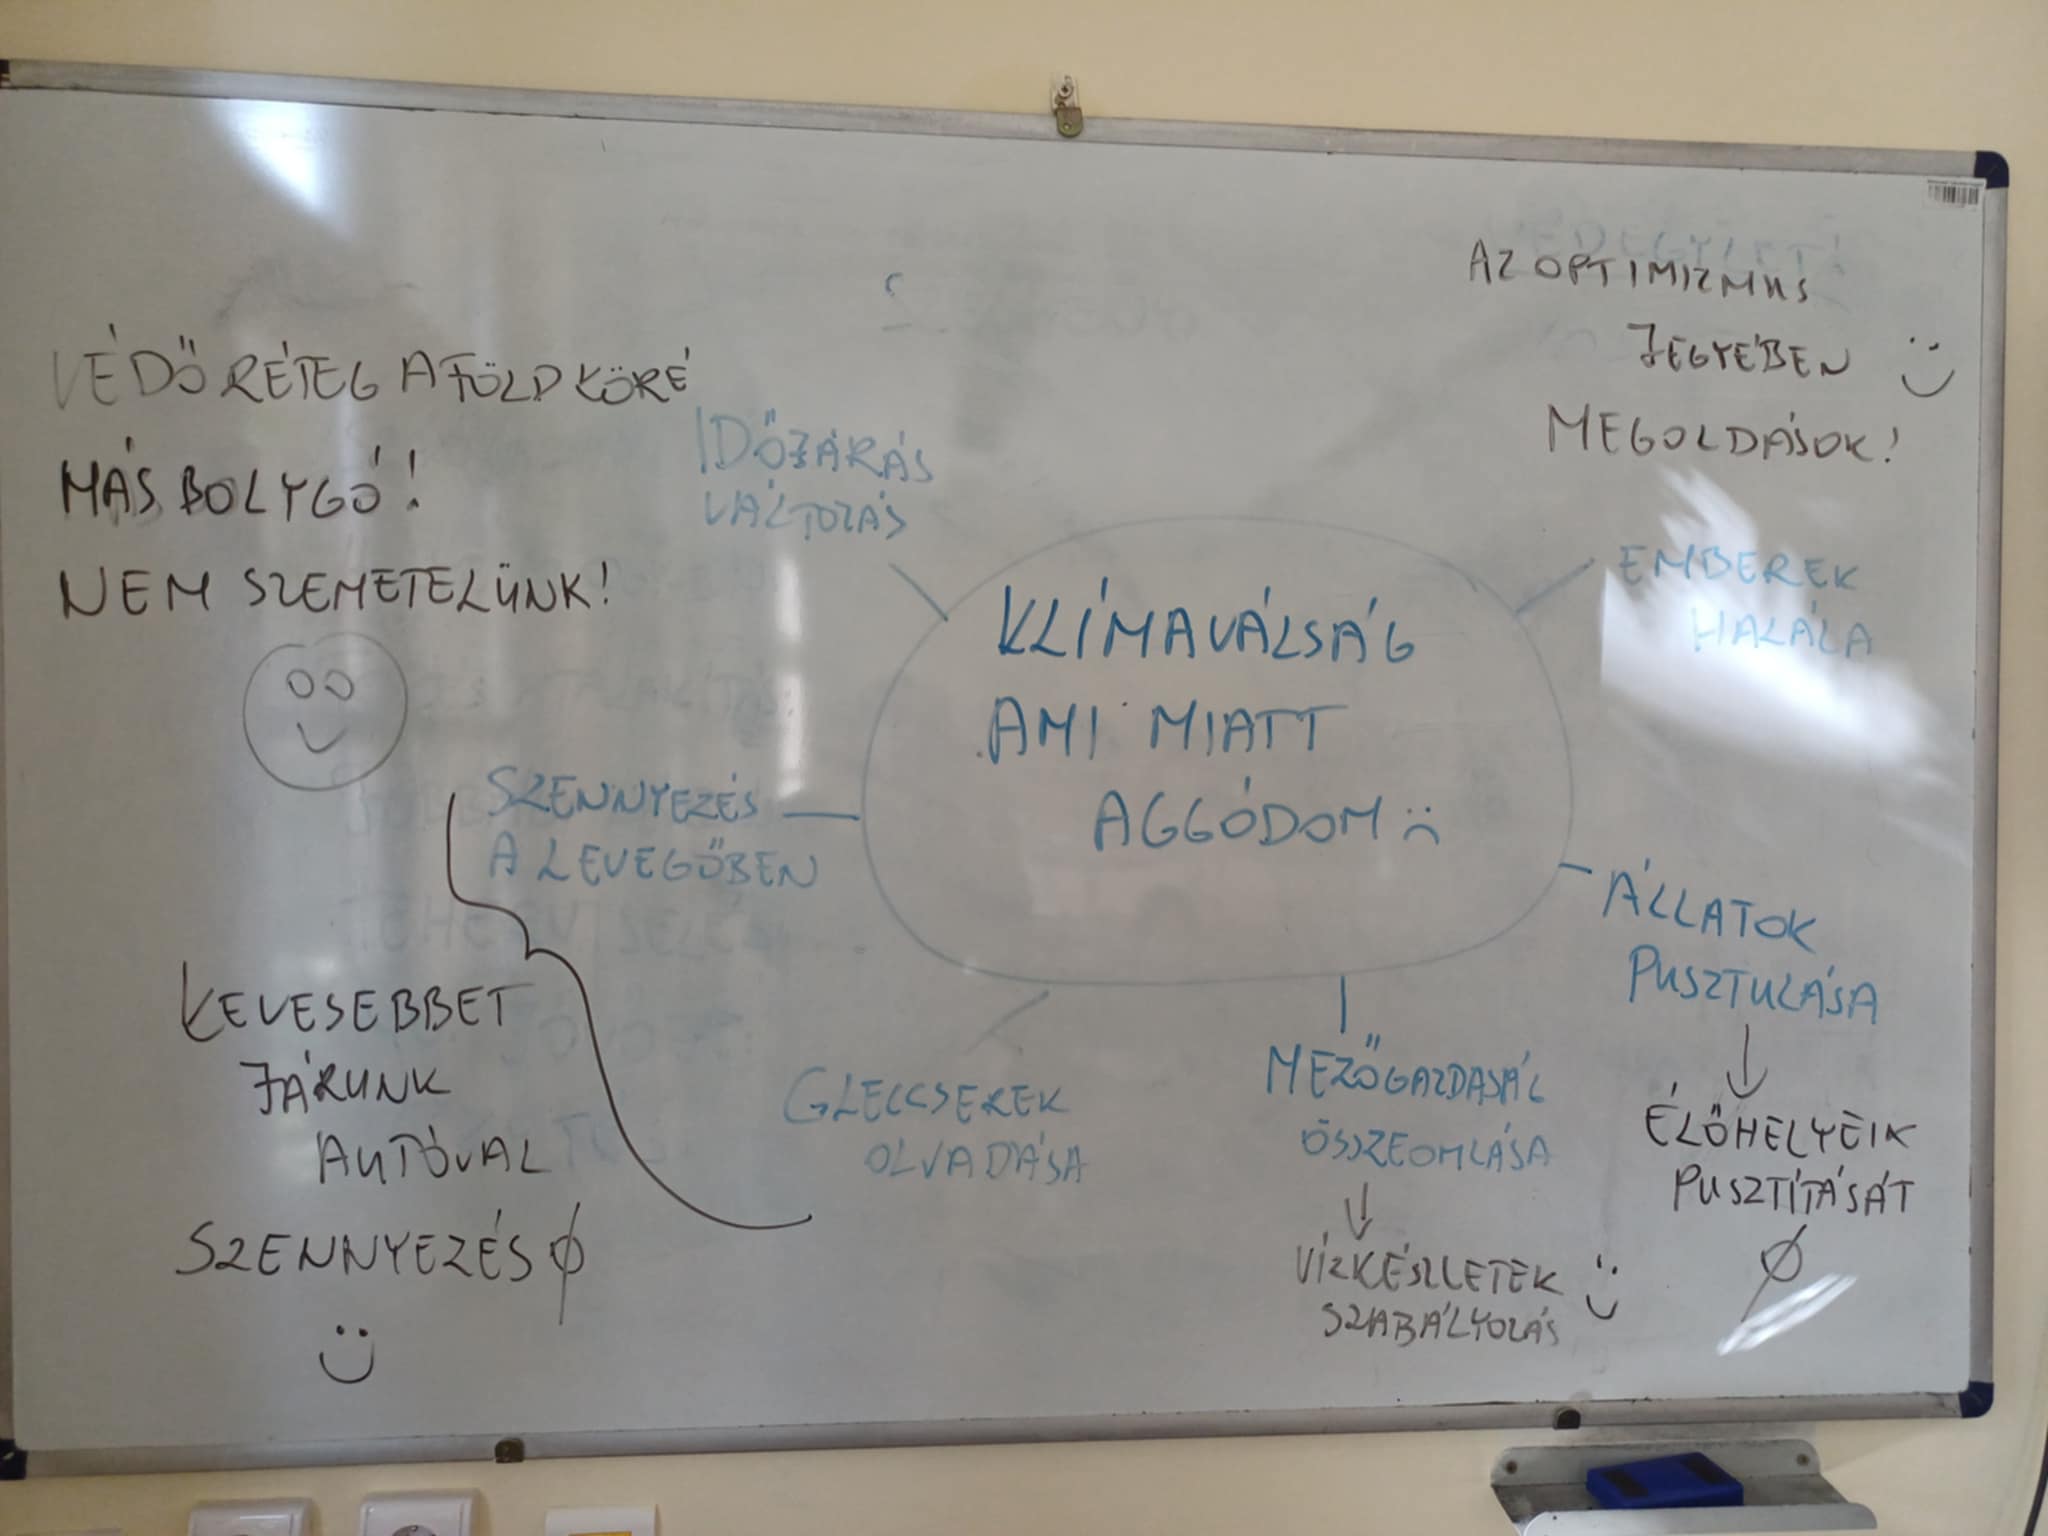 AZ OPTIMIZMUS
JEGYÉBEN
MEGOLDÁSOK!
VÉDŐRÉTEG A FÖLD KÖRÉ
MÁS BOLYGÓ!
NEM SZEMETELÜNK!
IDŐJÁRÁS
VÁLTOZÁS
KLÍMAVÁLSÁG
AMI MIATT
AGGÓDOM
EMBEREK
HALÁLA
SZENNYEZÉS
A LEVEGŐBEN
ÁLLATOK
PUSZTULÁSA
ÉLŐHELYEIK
PUSZTÍTÁSÁT
KEVESEBBET
JÁRUNK
AUTÓVAL
SZENNYEZÉS
GLECCSEREK
OLVADÁSA
MEZŐGAZDASÁG
ÖSSZEOMLÁSA
VÍZKÉSZLETEK
SZABÁLYOZÁS